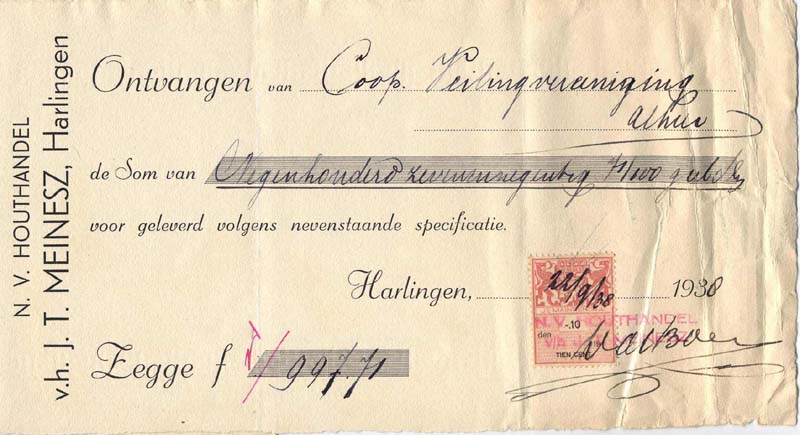 N. V. HOUTHANDEL
v.h. J. T. MEINESZ, Harlingen
Ontvangen van Coop. Veilingvereeniging
alhier
de Som van Negenhonderd zevenennegentig 71/100 gulden
voor geleverd volgens nevenstaande specificatie.
Harlingen, 22/9/38 1938
N.V. HOUTHANDEL
-.10
den
v/h J.T. MEINESZ
TIEN CENT
Zegge f 997.71